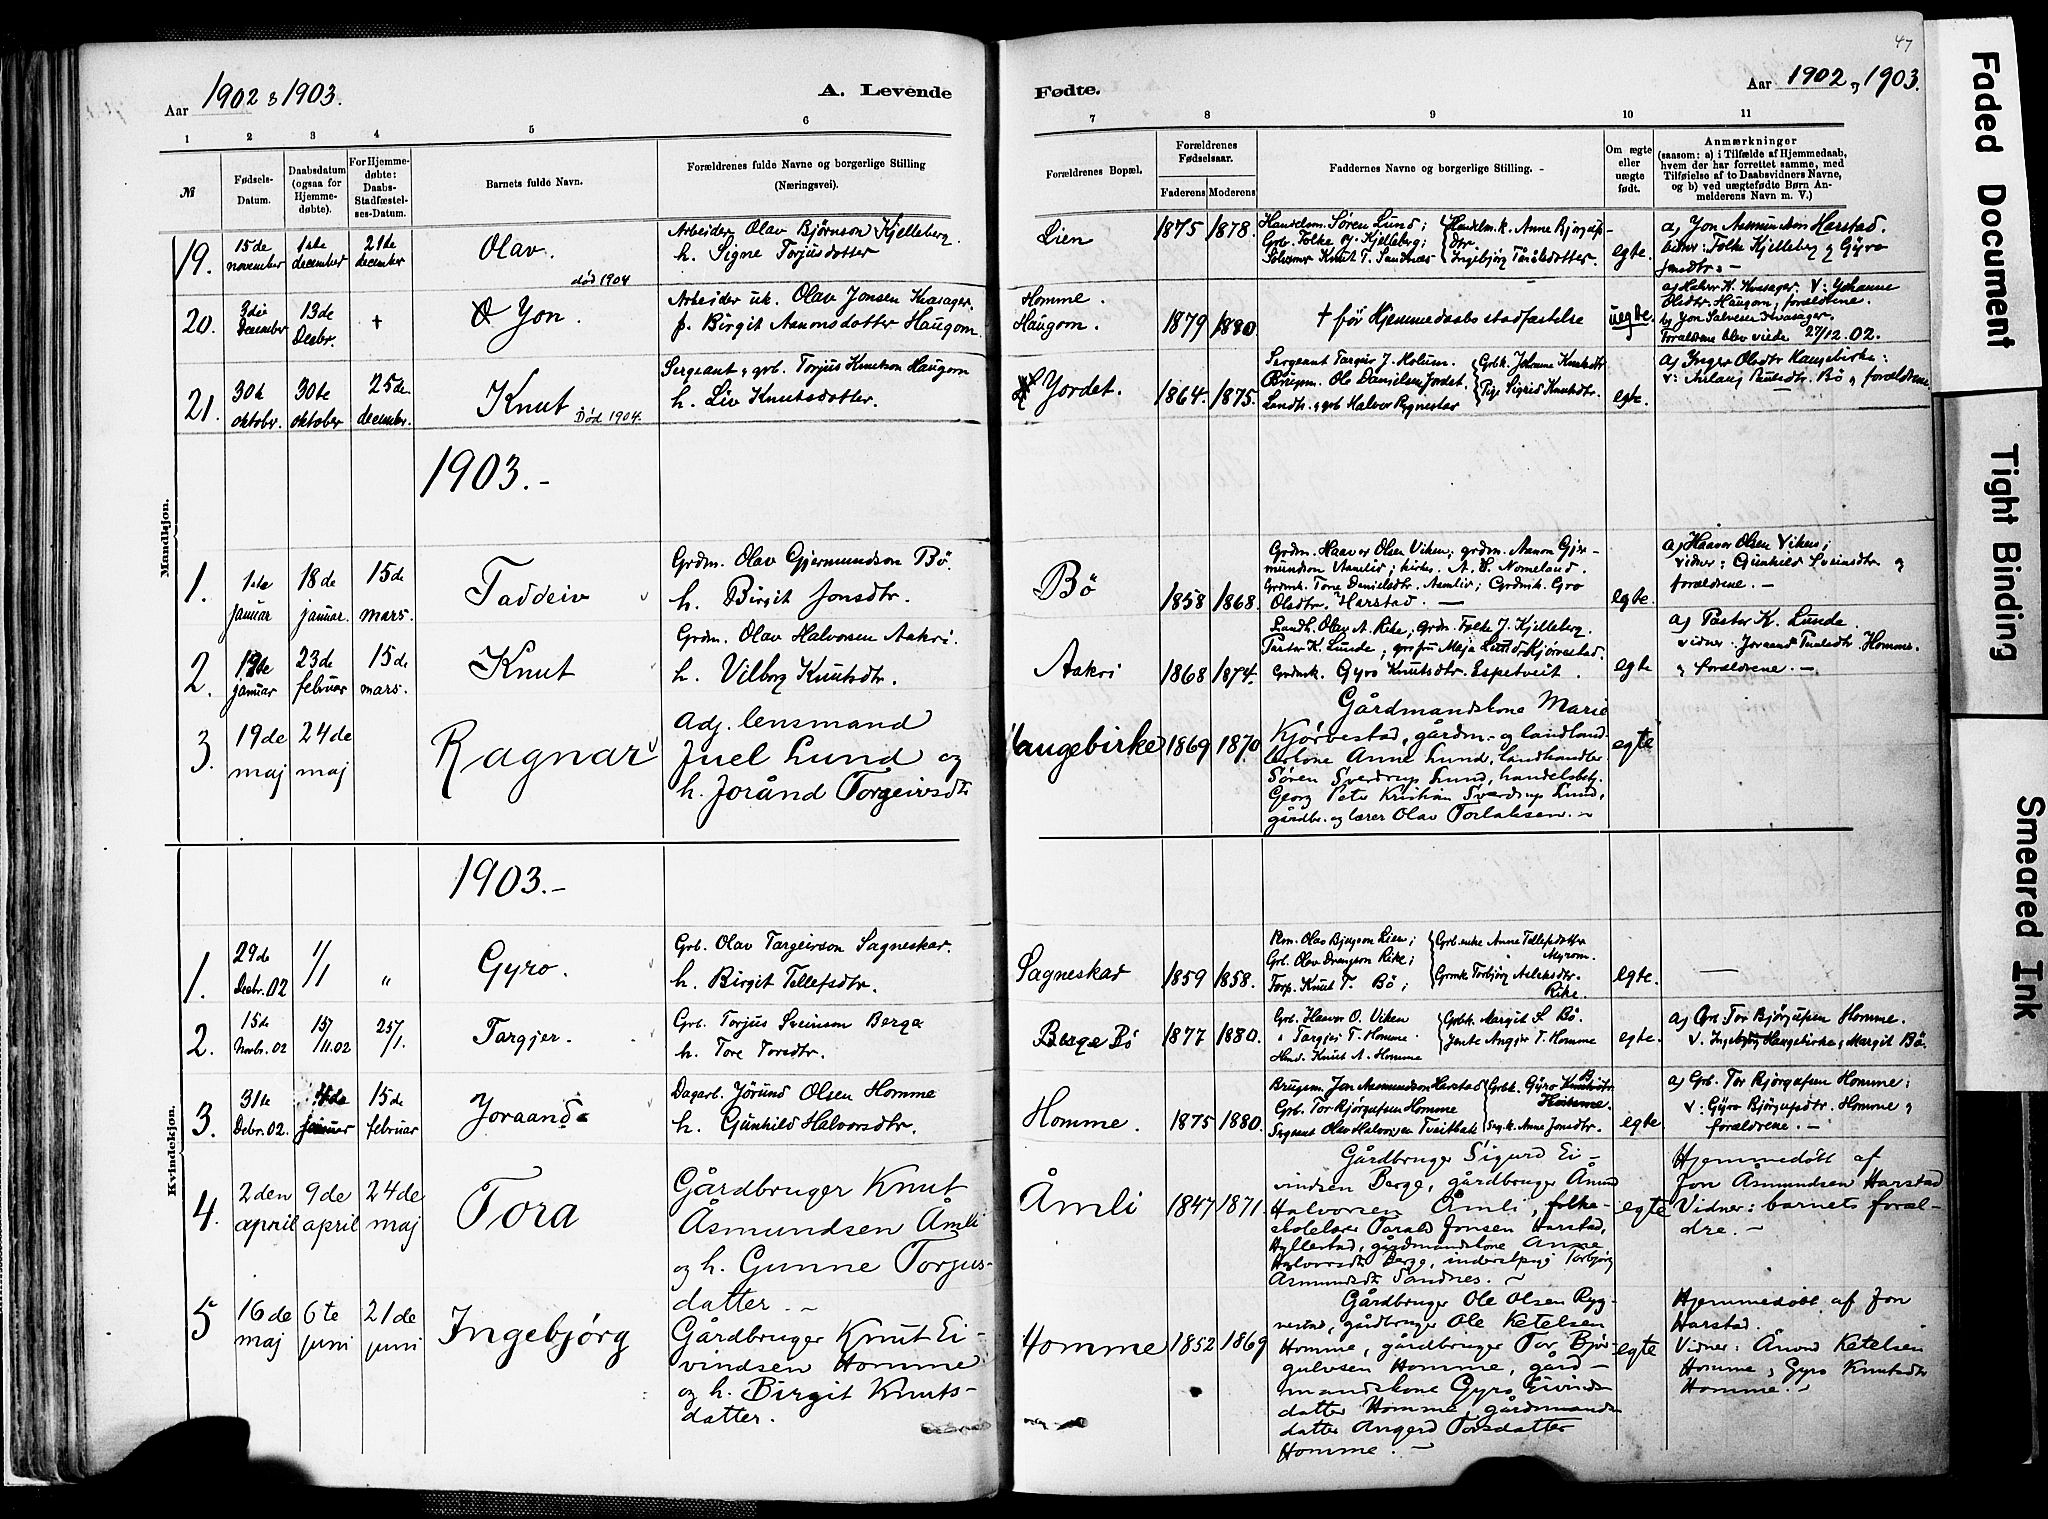 47
Aar 1902 & 1903.
A. Levende
Fødte.
Aar 1902 og 1903.
1 2 3 4 5 6
7 8 9 10 11
№
Fødsels-
Datum.
Daabsdatum
(ogsaa for
Hjemme-
døbte).
For Hjemme-
døbte:
Daabs-
Stadfæstel-
ses-Datum.
Barnets fulde Navn.
Forældrenes fulde Navne og borgerlige Stilling
(Næringsvei).
Forældrenes Bopæl.
Forældrenes
Fødselsaar.
Faderens Moderens
Faddernes Navne og borgerlige Stilling.
Om ægte
eller
uægte
født.
Anmærkninger
(saasom: a) i Tilfælde af Hjemmedaab,
hvem der har forrettet samme, med
Tilføielse af to Daabsvidners Navne,
og b) ved uægtefødte Børn An-
melderens Navn m. V.)
Mandkjøn.
19.
15de
november
1ste
december
21de
december
Olav.
Arbeider Olav Bjørnson Kjelleberg.
h. Signe Torjusdatter
Lien
1875 1878.
Handelsm. Søren Lund;
Grb. Folke og. Kjelleberg;
Knut T. Sandnæs
Handelsm.k. Anne Bjørgulfs-
dtr.
Ingebjørg Taraldsdatter.
egte.
a) Jon Asmundson Harstad.
vidner: Folke Kjelleberg og Gyro
Jonsdtr. –
20.
3die
December
13de
Decbr.
+
død 1904
Yon.
Arbeider uk. Olav Jonsen Kvasager.
p. Birgit Aanonsdatter Haugom.
Homme.
Haugom.
1879 1880
+ før Hjemmedaabsstadfæstelse
uegte.
a) Halvor K. Kvasager. V: Johanne
Olsdtr. Haugom, forældrene.
b) Jon Salvesen Kvasager.
Forældrene blev viede 27/12.02.
21.
30te
oktober
30te
oktober
25de
december.
Knut
Død 1904.
Sergeant & grb. Torjus Knutson Haugom
h. Liv Knutsdatter.
Yordet.
1864. 1875.
Sergeant Targeir J. Holum.
Brugsm. Ole Danielsen Jordet.
Landh. & grb Halvor Rygnestad
Grbk. Johanne Knutsdtr
Pige Sigrid Knutsdtr.
egte.
a) Inger Olsdtr Haugebirke:
V: Aslaug Paulsdtr. Bø & forældrene
1903.-
1.
1ste
januar
18de
januar.
15de
mars.
Taddeiv
Grdm. Olav Gjermundson Bö.
h. Birgit Jonsdtr.
Bö
1858 1868.
Grdm. Haavor Olsen Viken; grdm. Aanon Gjer-
mundson Aamliv; kirkes. A. O. Nomeland.
Grdmk. Tone Danielsdtr. Aamliv; Grdmk. Gro
Olsdtr. Harstad. –
egte.
a) Haavor Olsen Viken;
vidner: Gunhild Sveinsdtr og
forældrene. –
2.
19de
januar
23de
februar
15de
mars.
Knut
Grdm. Olav Halvorsen Aakri.
h. Vilborg Knutsdtr.
Aakri
1868 1874.
Landh. Olav A. Rike; Grdm. Folke J. Kjelleberg.
Pastor K. Lunde; Maja Lund Kjørvestad.
Grdmk. Gyro Knutsdtr. Espetveit.
egte
a) Pastor K. Lunde.
vidner: Joraand Homme.
& forældrene. –
3.
19de
maj
24de
maj
Ragnar
Adj. lensmand
Juel Lund og
h. Jorånd Torgeirsdtr
Haugebirke
1869 1870
Gårdmandskone Marie
Kjørvestad, gårdm.- og landhand-
lerkone Anne Lund, landhandler
Søren Sverdrup Lund, handelsbetj.
Georg Peter Kristian Sverdrup Lund,
gårdbr. og lærer Olav Torlaksen. –
egte
Kvindekjøn.
1903.-
1.
29de
Decbr. 02
1/1
"
Gyro.
Grb. Olav Targeirson Sagneskar.
h. Birgit Tellefsdtr.
Sagneskar
1859 1858.
Rm. Olav Bjørgson Lien;
Grb. Olav Drengson Rike;
Torp. Knut T. Bö;
Grb.enke Anne Tellefsdatter
Myrom.
Grmk Torbjørg Aslaksdtr.
Rike.
egte.
–
2.
15de
Novbr. 02
15/
11.02
25/1.
Targjer.
Grb. Torjus Sveinson Berge
h. Tore Torsdtr.
Berge Bö
1877 1880.
Grb. Haavor O. Viken
" Targjei T. Homme
Knut A. Homme
Grbk. Margit S. Bö.
Jente Angjer T. Homme
egte.
a) Grb. Tor Bjørgufsen Homme.
V. Ingebjørg Haugebirke & Margit Bö.
3.
31te
Decbr. 02.
januar
15de
februar
Joraand
Dagarb. Jörund Olsen Homme
h. Gunhild Halvorsdtr.
Homme.
1875 1880.
Brugsm. Jon Asmundson Harstad
Grb. Tor Bjørgufsen Homme
Sergeant Olav Halvorsen Tveitbak
Grbk. Gyro Knutsdtr.
Homme.
Anne Jonsdtr.
egte
a) Grb. Tor Bjørgufsen Homme;
V: Gyro Bjørgufsdtr. Homme &
forældrene. –
4.
2den
april
9de
april
24de
maj
Tora
Gårdbruger Knut
Åsmundsen Åmli
og h. Gunne Torjus-
datter. –
Åmli
1847 1871.
Gårdbruger Sigurd Ei-
vindsen Berge, gårdbruger Ånund
Halvorsen Åmli, folke-
skolelærer Tarald Jonsen Harstad,
Hyllestad, gårdmandskone Anne
Halvorsdtr Berge, inderstpige Torbjørg
Åsmundsdtr Sandnes. –
egte
Hjemmedøbt af
Jon Åsmundsen Harstad
Vidner: barnets foræl-
dre. –
5
16de
maj
6te
juni
21de
juni
Ingebjørg
Gårdbruger Knut Ei-
vindsen Homme
og h. Birgit Knuts-
datter.
Homme
1852 1869
Gårdbruger Ole Olsen Ryg-
nestad, gårdbruger Ole Ketelsen
Homme, gårdbruger Tor Bjør-
gulvsen Homme, gård-
mandskone Gyro Eivinds-
datter Homme, gårdmands-
datter Angerd Torsdatter
Homme. –
egte
Hjemmedøbt af Jon
Harstad.
Vidner: Ånund Ketelsen
Homme & Gyro Knutsdtr
Homme. –
Faded Document
Tight Binding
Smeared Ink